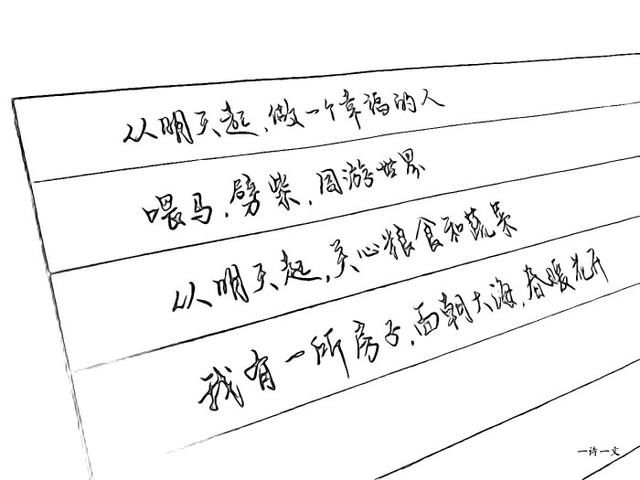 从明天起，做一个幸福的人
喂马，劈柴，周游世界
从明天起，关心粮食和蔬菜
我有一所房子，面朝大海，春暖花开
一诗一文